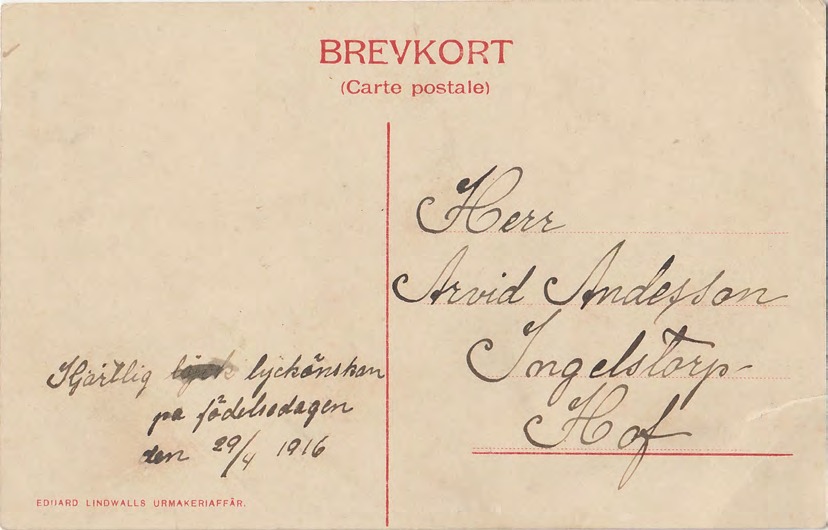 BREVKORT
(Carte postale)
Hjärtlig lyckönskan
på födelsedagen
den 29/4 1916
EDUARD LINDWALLS URMAKERIAFFÄR.
Herr
Arvid Andesson
Ingelstorp
Hof